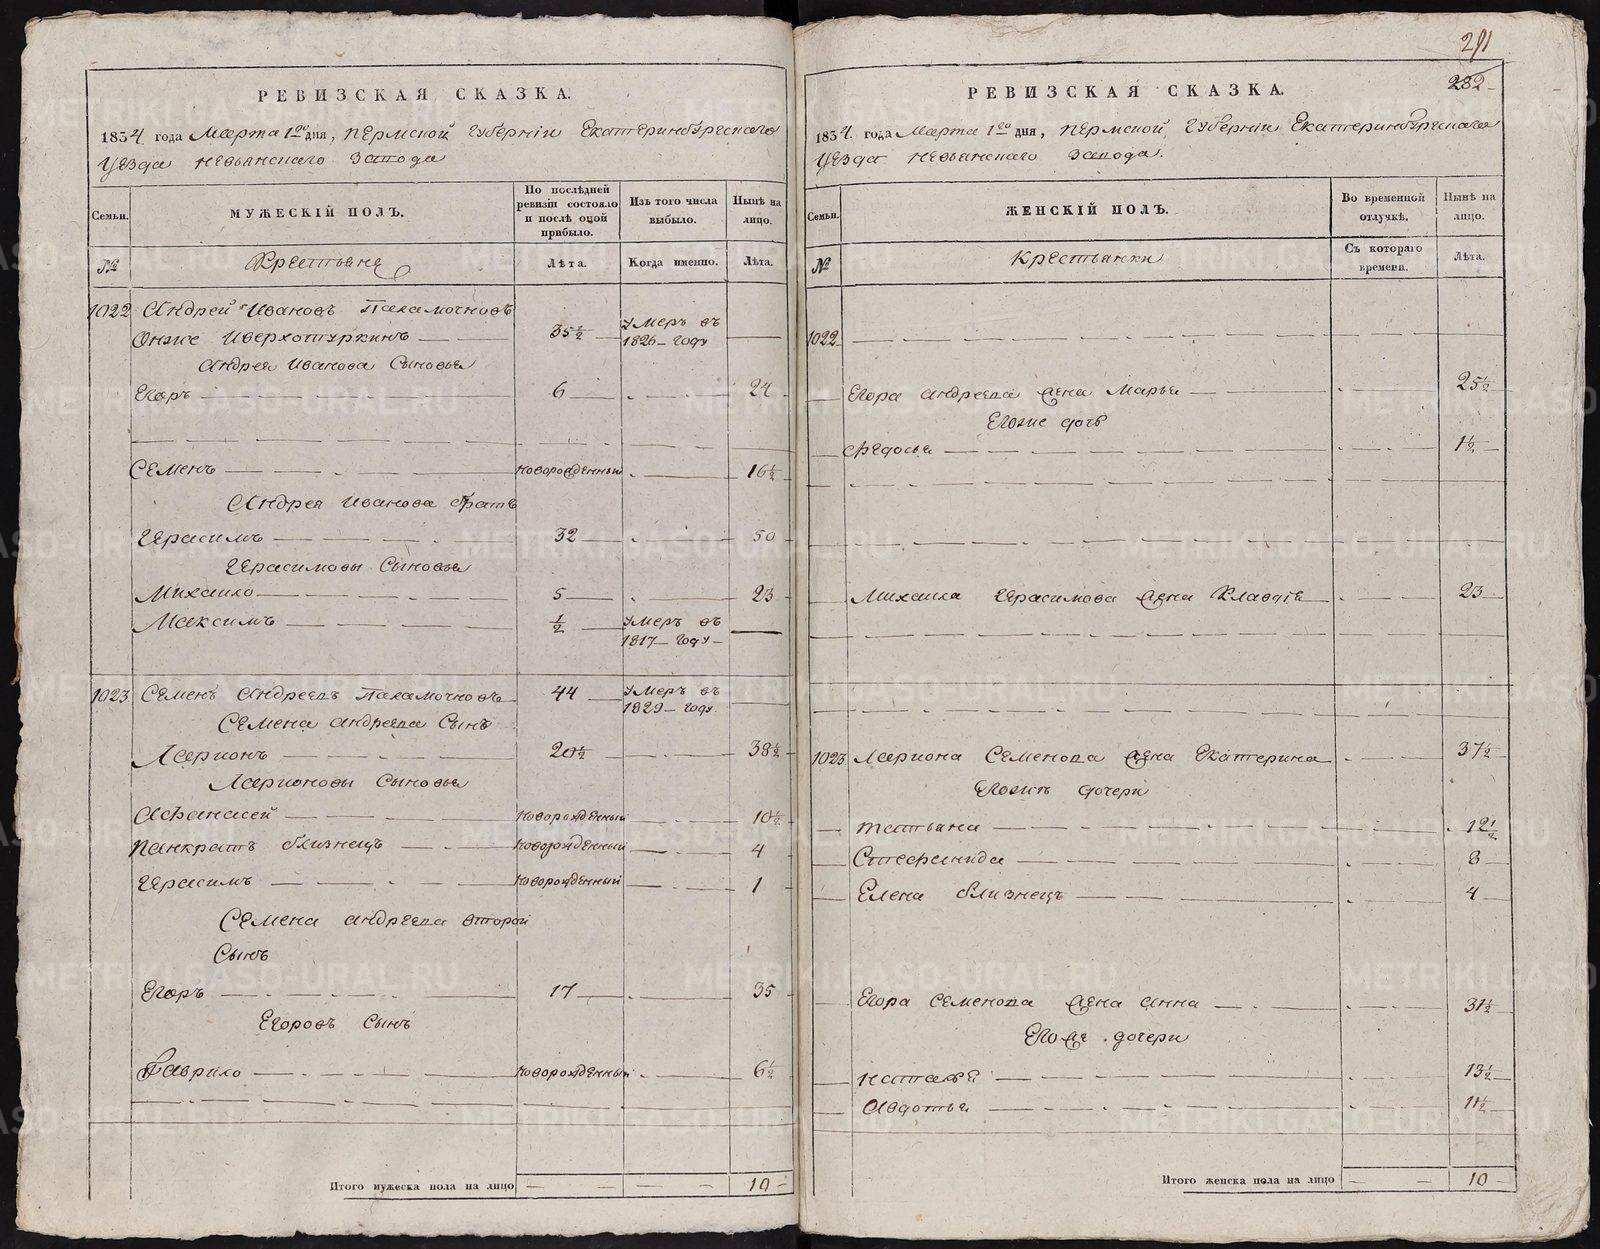 РЕВИЗСКАЯ СКАЗКА.
1834 года Марта 1го дня, Пермской Губернiи Екатеринбургскаго
Уезда Невьянскаго Завода
Семьи.
МУЖЕСКIЙ ПОЛЪ.
По послѣдней ревизiи состояло и послѣ оной прибыло.
Изъ того числа выбыло.
Нынѣ на лицо.
№
Крестьяне
Лѣта.
Когда именно.
Лѣта.
1022 Андрей Ивановъ Паламочновъ
Онже Иверхотуркинъ 35½ Умеръ въ 1826 году
Андрея Иванова Сыновья
Егоръ 6 24
Семенъ новорожденный 16½
Андрея Иванова братъ
Герасимъ 32 50
Герасимовы Сыновья
Михайло 5 23
Максимъ ½ Умеръ въ 1817 году
1023 Семенъ Андреевъ Паламочновъ 44 Умеръ въ 1829 году
Семена Андреева Сынъ
Ларионъ 20½ 38½
Ларионовы Сыновья
Афанасей новорожденный 10½
Панкратъ близнецъ новорожденный 4
Герасимъ новорожденный 1
Семена Андреева второй
Сынъ
Егоръ 17 35
Егоровъ Сынъ
Гаврило новорожденный 6½
Итого мужеска пола на лицо 10
291
282
РЕВИЗСКАЯ СКАЗКА.
1834 года Марта 1го дня, Пермской Губернiи Екатеринбургскаго
Уезда Невьянскаго Завода.
Семьи.
ЖЕНСКIЙ ПОЛЪ.
Во временной отлучкѣ.
Нынѣ на лицо.
№
Крестьянки
Съ котораго времени.
Лѣта.
1022
Егора Андреева жена Марья 25½
Егоже дочь
Федосья 1½
Михаила Герасимова жена Клавдiя 23
1023 Лариона Семенова жена Екатерина 37½
Егожъ дочери
Татьяна 12½
Стефанида 8
Елена близнецъ 4
Егора Семенова жена Анна 31½
Егоже дочери
Наталья 13½
Авдотья 11½
Итого женска пола на лицо 10
METRIKI.GASO-URAL.RU